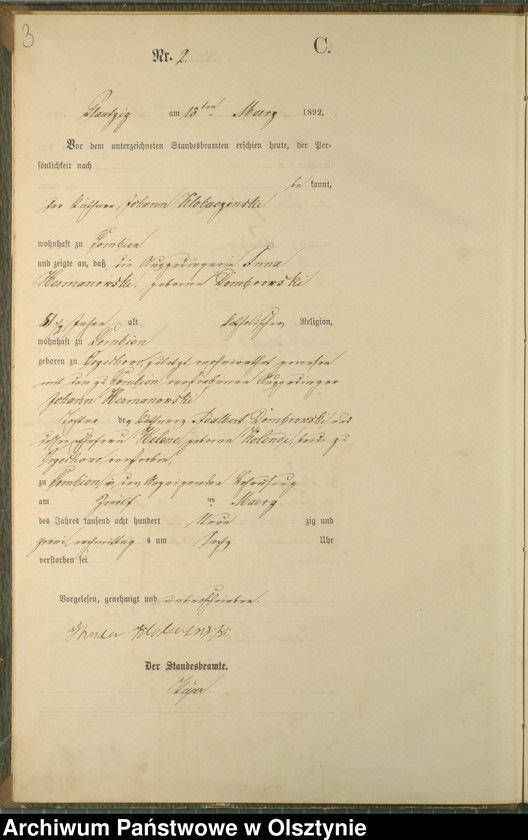 3
C.
Nr. 2.
am 13ten Maerz 1892.
Vor dem unterzeichneten Standesbeamten erschien heute, der Per-
sönlichkeit nach
be kannt,
der Käthner Johann
wohnhaft zu Gombien
und zeigte an, daß die Anna
Hermanowski, geborene Dombrowski
61 1/2 Jahre alt katholischer Religion,
wohnhaft zu Gombien
geboren zu zuletzt verheirathet gewesen
mit dem zu Gombien verstorbenen
Johann Hermanowski
Tochter des Käthners Adalbert Dombrowski und
dessen Ehefrau Helene, geborene beide zu
verstorben,
zu Gombien in der Behausung
am Zwölften Maerz
des Jahres tausend acht hundert Neun zig und
zwei, nachmittag s um Sechs Uhr
verstorben sei
Vorgelesen, genehmigt und unterschrieben.
Der Standesbeamte.
Archiwum Państwowe w Olsztynie